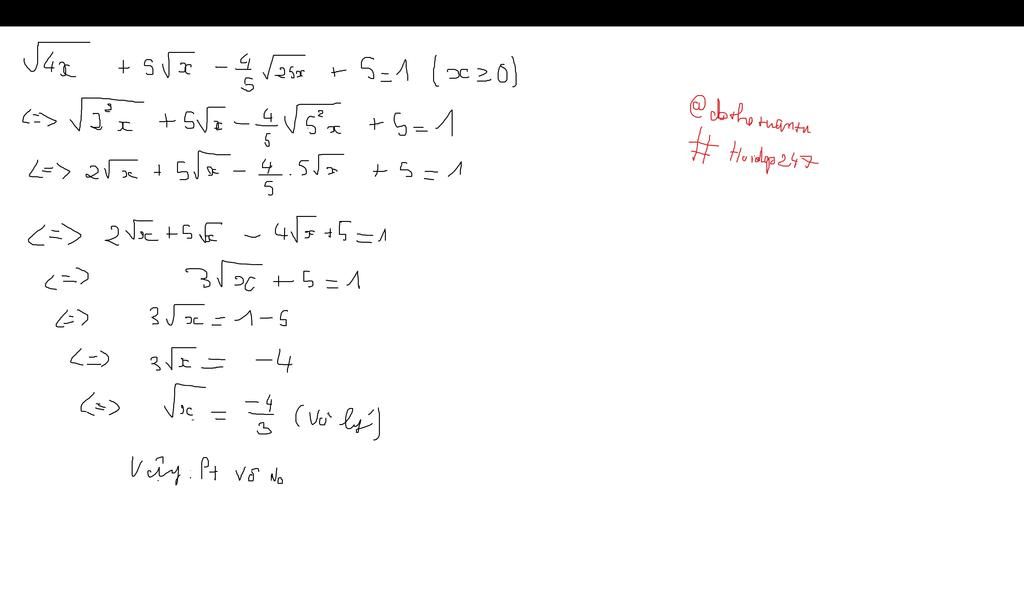 √4x + 5√x − 4/5 √25x + 5 = 1 (x ≥ 0)
<=> √2²x + 5√x − 4/5 √5²x + 5 = 1
<=> 2√x + 5√x − 4/5 . 5√x + 5 = 1
<=> 2√x + 5√x − 4√x + 5 = 1
<=> 3√x + 5 = 1
<=> 3√x = 1 − 5
<=> 3√x = −4
<=> √x = −4/3 (Vô lý)
Vậy. Pt vô No
# Hoidap247